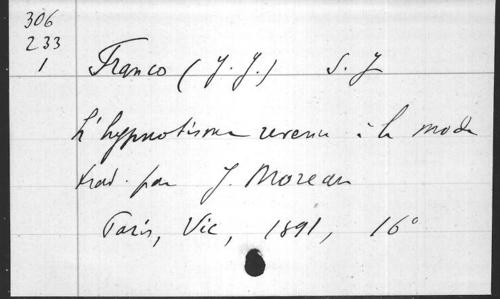 306
233
1
Franco (J. J.) S. J
L'hypnotisme revenu à la mode
trad. par J. Moreau
Paris, Vic, 1891, 16°